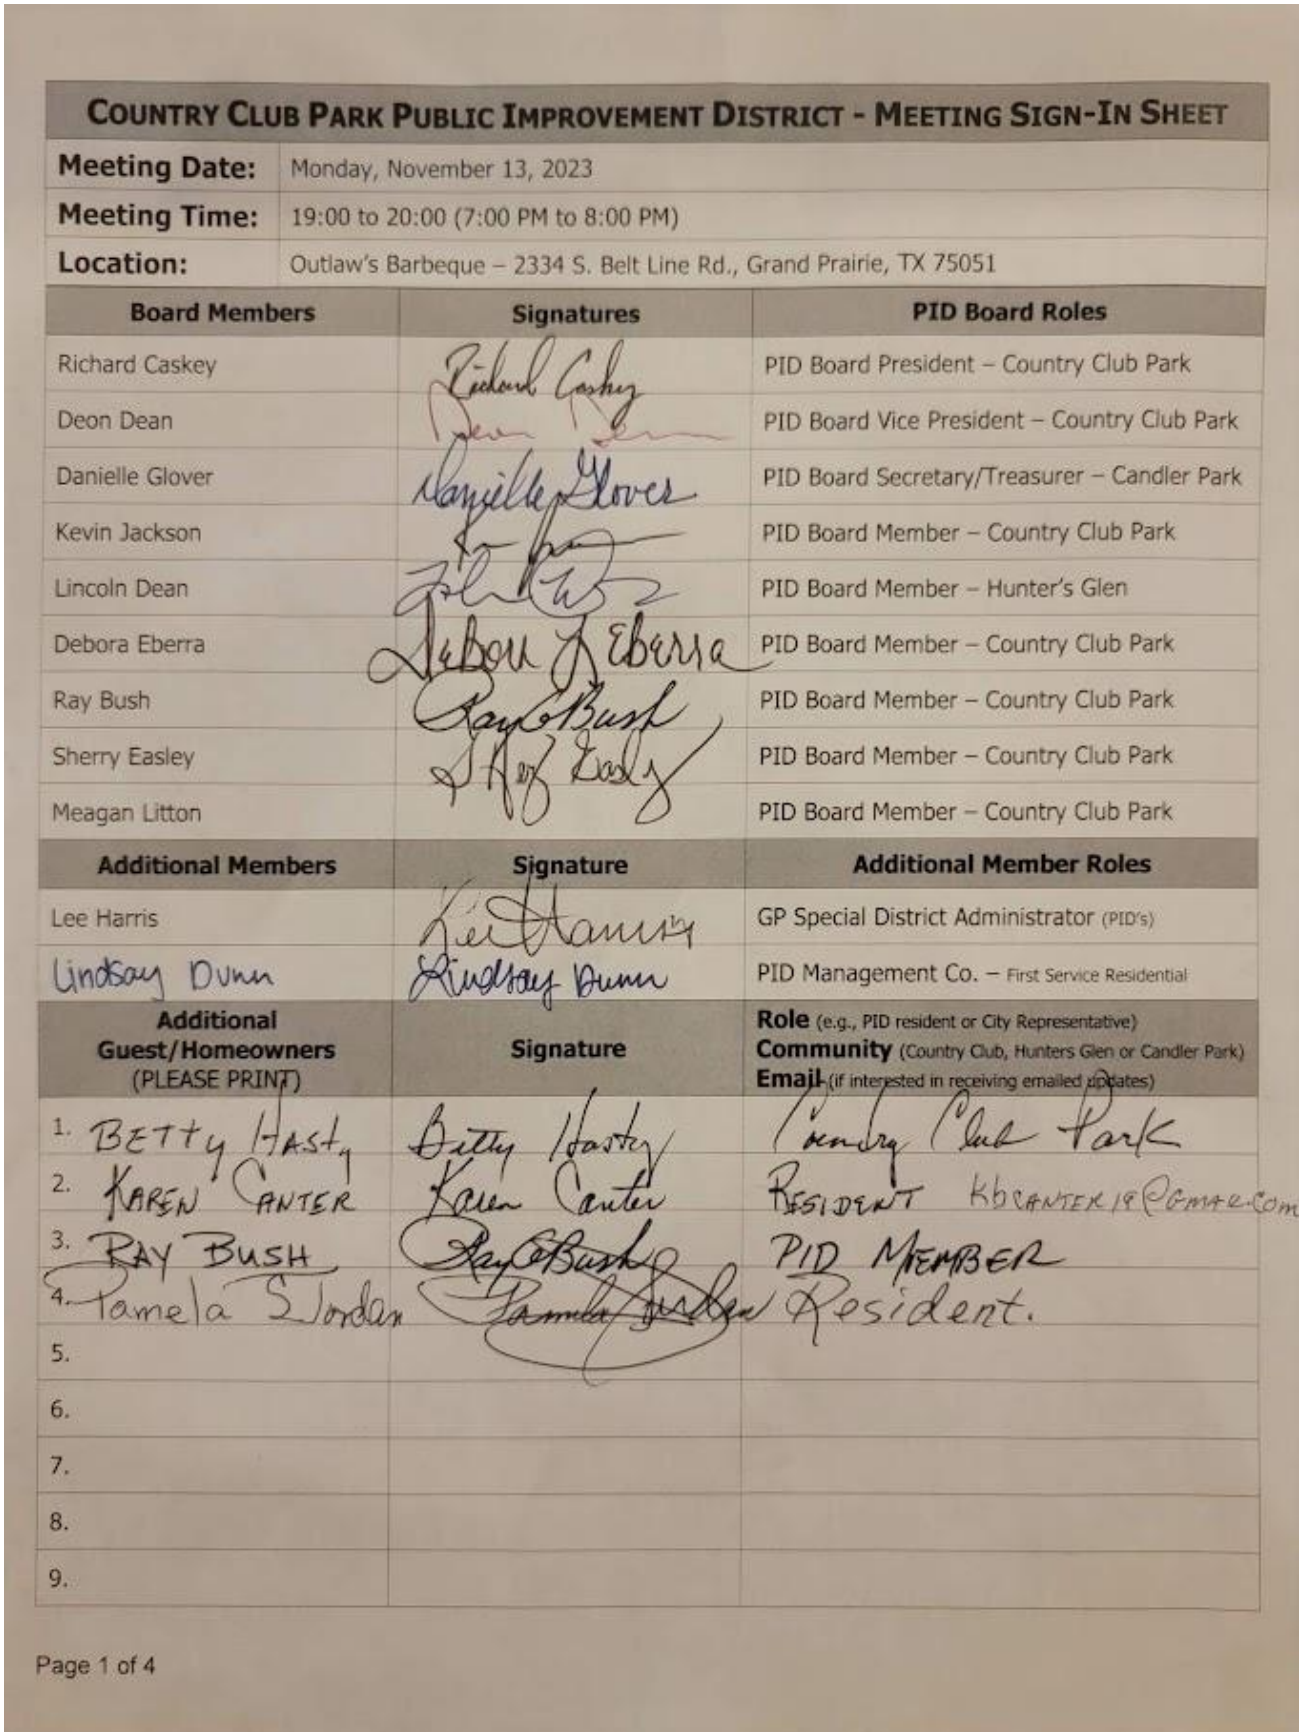 COUNTRY CLUB PARK PUBLIC IMPROVEMENT DISTRICT - MEETING SIGN-IN SHEET
Meeting Date: Monday, November 13, 2023
Meeting Time: 19:00 to 20:00 (7:00 PM to 8:00 PM)
Location: Outlaw's Barbeque – 2334 S. Belt Line Rd., Grand Prairie, TX 75051
Board Members Signatures PID Board Roles
Richard Caskey Richard Caskey PID Board President – Country Club Park
Deon Dean Deon Dean PID Board Vice President – Country Club Park
Danielle Glover Danielle Glover PID Board Secretary/Treasurer – Candler Park
Kevin Jackson PID Board Member – Country Club Park
Lincoln Dean PID Board Member – Hunter's Glen
Debora Eberra Eberra PID Board Member – Country Club Park
Ray Bush Ray Bush PID Board Member – Country Club Park
Sherry Easley PID Board Member – Country Club Park
Meagan Litton PID Board Member – Country Club Park
Additional Members Signature Additional Member Roles
Lee Harris GP Special District Administrator (PID's)
Lindsay Dunn Lindsay Dunn PID Management Co. – First Service Residential
Additional
Guest/Homeowners
(PLEASE PRINT)
Signature
Role (e.g., PID resident or City Representative)
Community (Country Club, Hunters Glen or Candler Park)
Email (if interested in receiving emailed updates)
1. BETTy HASTy Betty Hasty Country Club Park
2. KAREN CANTER Karen Canter RESIDENT
3. RAY BUSH Ray Bush PID MEMBER
4. Pamela S Jordan Pamela Jordan Resident.
5.
6.
7.
8.
9.
Page 1 of 4